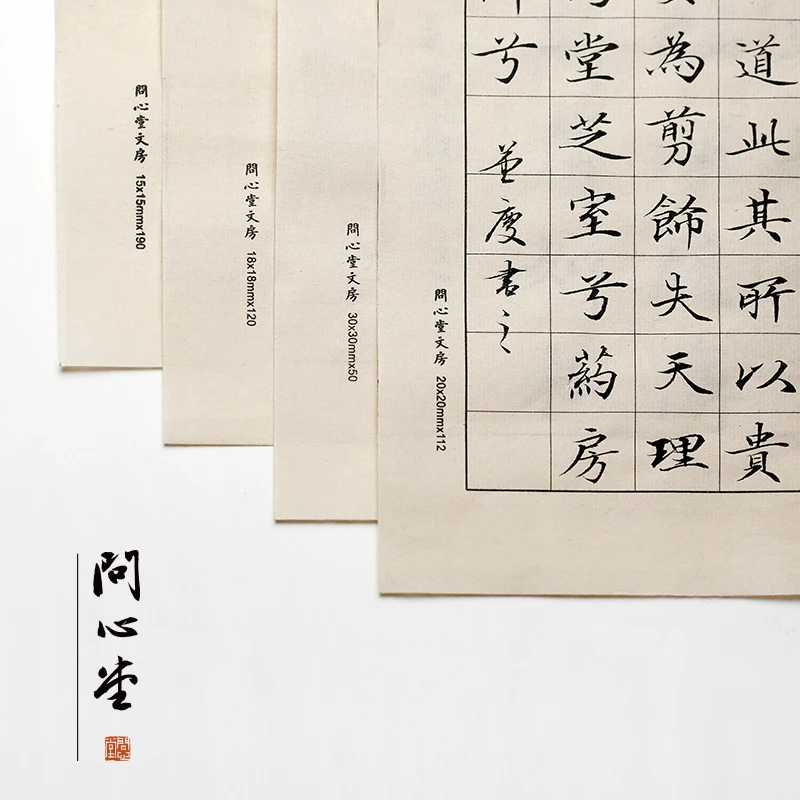 問心堂文房 15x15mmx190
問心堂文房 18x18mmx120
問心堂文房 30x30mmx50
問心堂文房 20x20mmx112
道此其所以貴
為剪飾失天理
堂芝室兮葯房
兮 並度書之
問心堂
問心堂